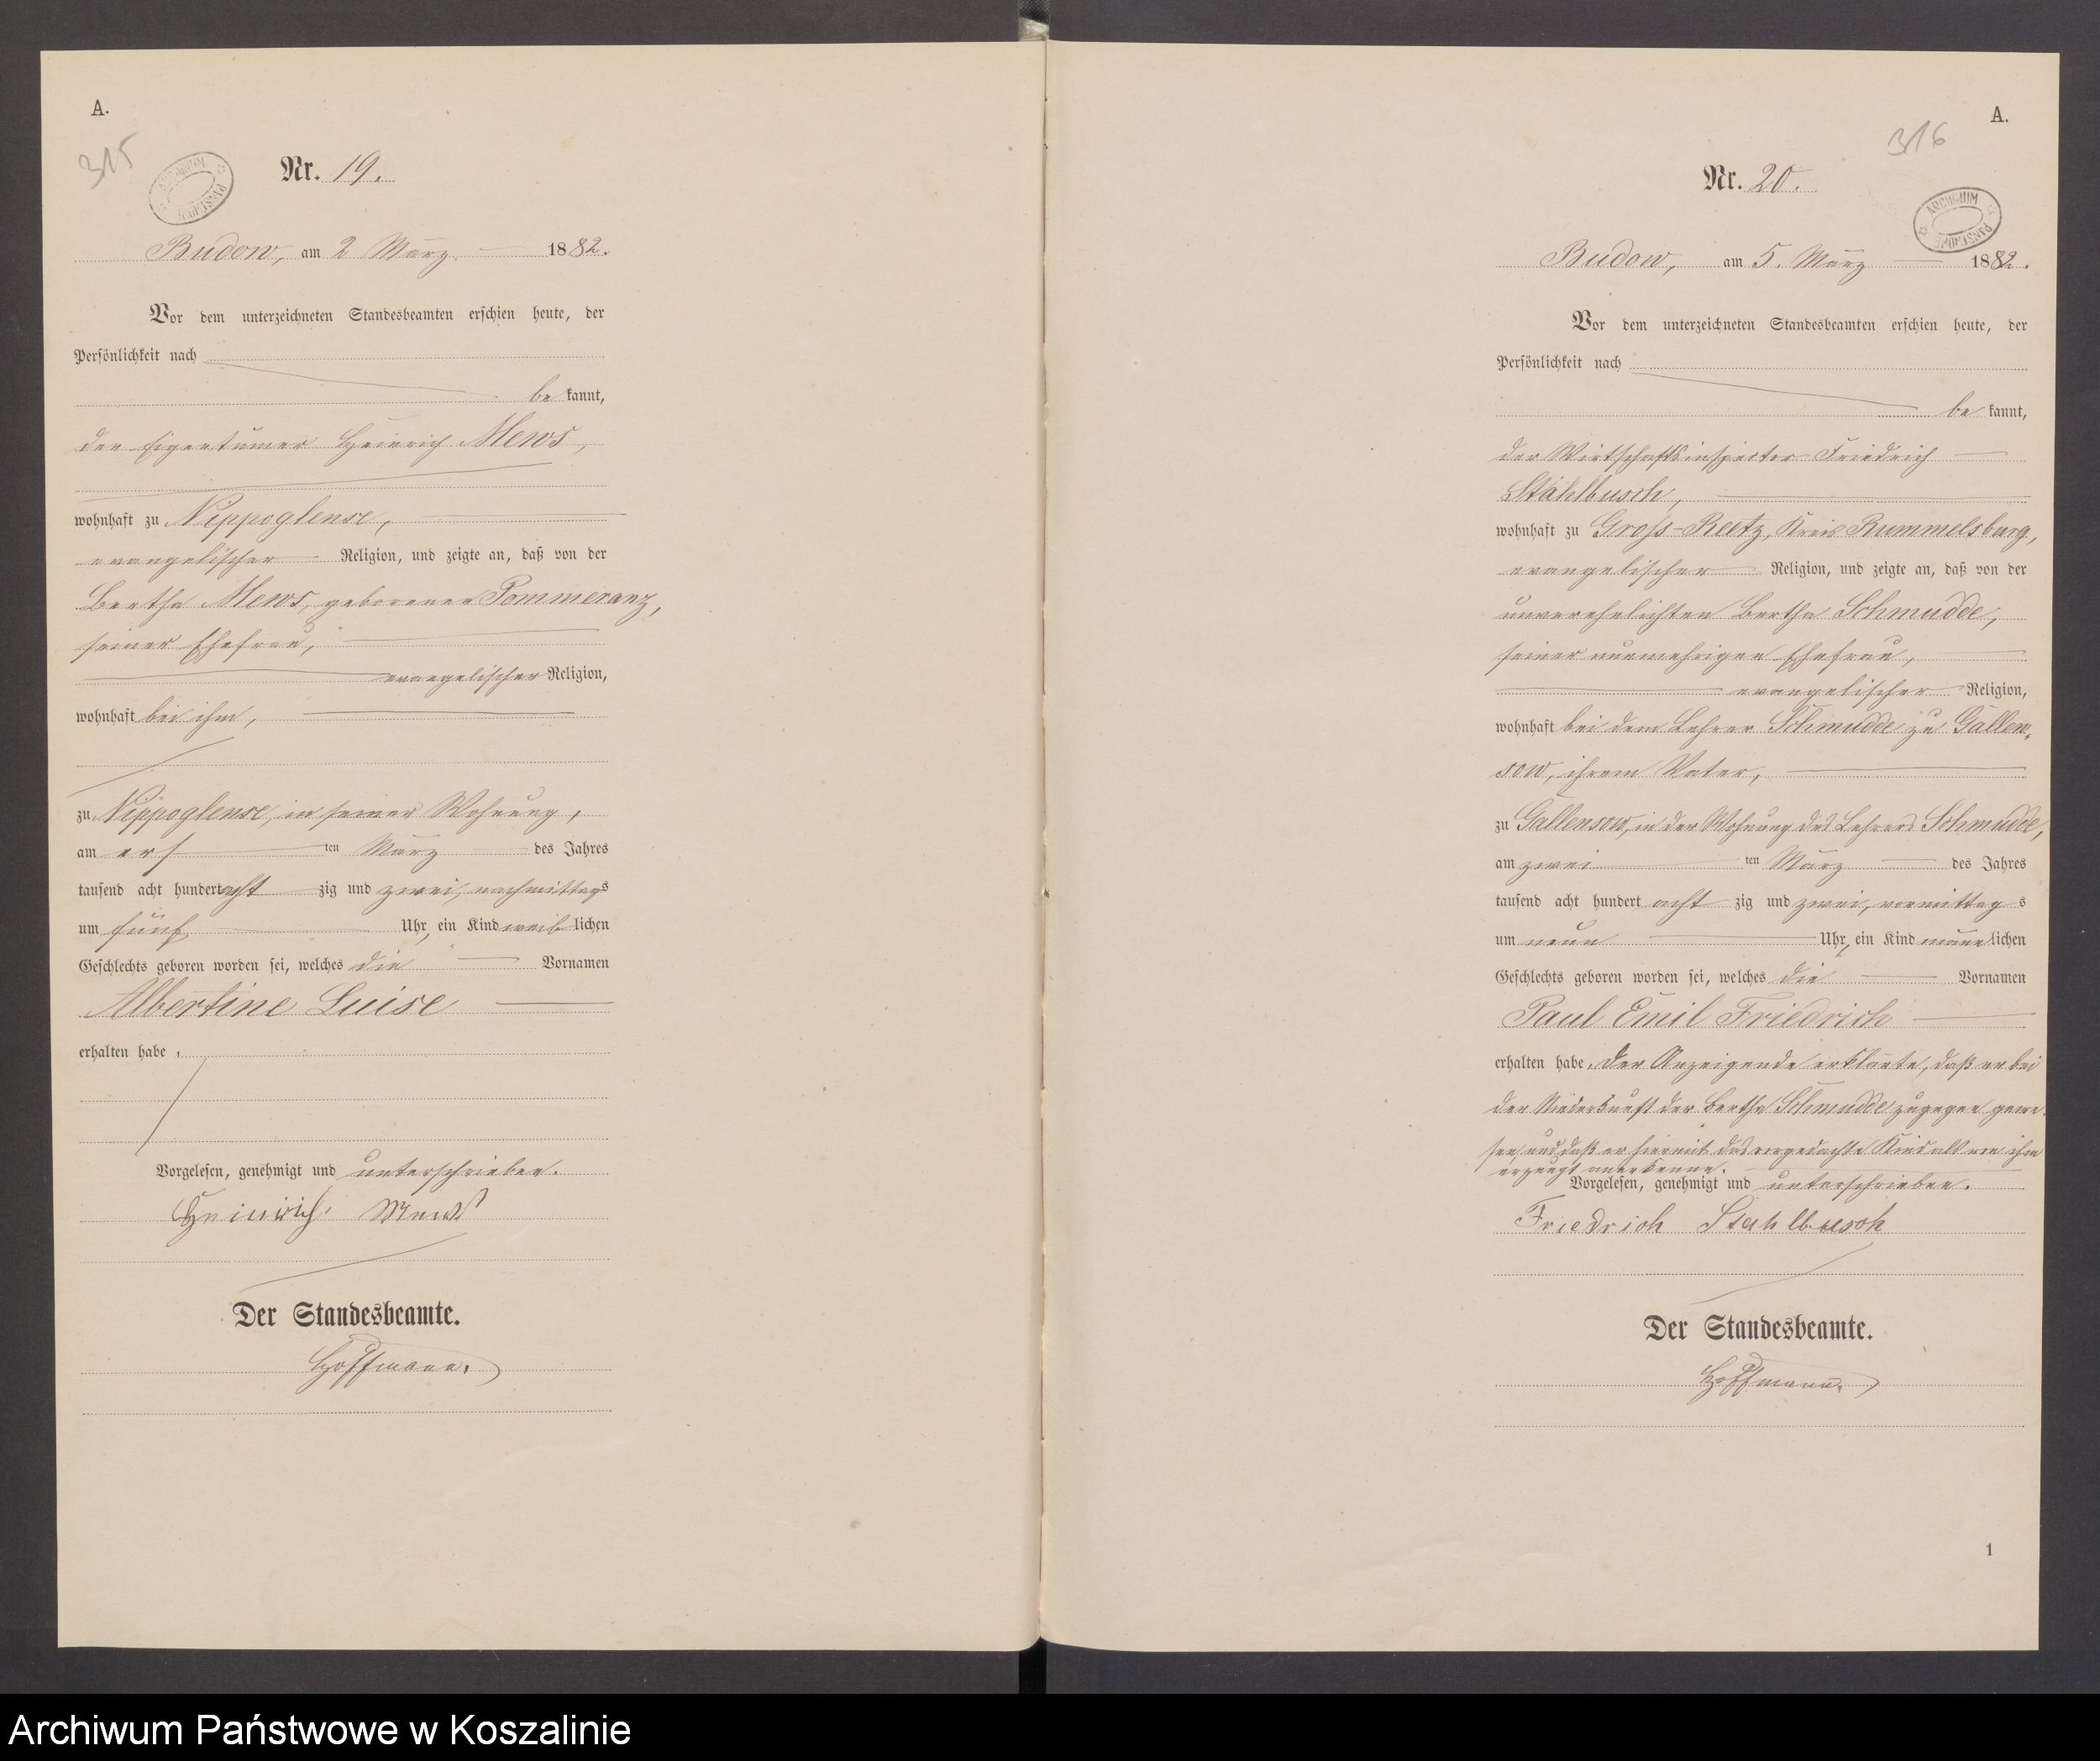 A.
315
ARCHIWUM PAŃSTWOWE
Nr. 19.
Budow, am 2 März 1882.
Vor dem unterzeichneten Standesbeamten erschien heute, der
Persönlichkeit nach
bekannt,
der Eigentümer Heinrich Mews,
wohnhaft zu Nippoglense,
evangelischer Religion, und zeigte an, daß von der
Bertha Mews, geborenen Pommeranz,
seiner Ehefrau,
evangelischer Religion,
wohnhaft bei ihm,
zu Nippoglense, in seiner Wohnung,
am ersten März des Jahres
tausend acht hundert achtzig und zwei, nachmittags
um fünf Uhr, ein Kind weiblichen
Geschlechts geboren worden sei, welches die Vornamen
Albertine Luise
erhalten habe.
Vorgelesen, genehmigt und unterschrieben.
Heinrich Mews
Der Standesbeamte.
Hoffmann.
A.
316
Nr. 20.
ARCHIWUM PAŃSTWOWE
Budow, am 5. März 1882.
Vor dem unterzeichneten Standesbeamten erschien heute, der
Persönlichkeit nach
bekannt,
der Wirtschaftsinspector Friedrich
Stahlbusch,
wohnhaft zu Gross-Reetz, Kreis Rummelsburg,
evangelischer Religion, und zeigte an, daß von der
unverehelichten Bertha Schmudde,
seiner nunmehrigen Ehefrau,
evangelischer Religion,
wohnhaft bei dem Lehrer Schmudde zu Gallen-
sow, ihrem Vater,
zu Gallensow, in der Wohnung des Lehrers Schmudde,
am zweiten März des Jahres
tausend acht hundert achtzig und zwei, vormittags
um neun Uhr, ein Kind männlichen
Geschlechts geboren worden sei, welches die Vornamen
Paul Emil Friedrich
erhalten habe. Der Anzeigende erklärte, daß er bei
der Niederkunft der Bertha Schmudde zugegen gewe-
sen und daß er hiermit das vorgedachte Kind als von ihm
erzeugt anerkenne.
Vorgelesen, genehmigt und unterschrieben.
Friedrich Stahlbusch
Der Standesbeamte.
Hoffmann.
1
Archiwum Państwowe w Koszalinie